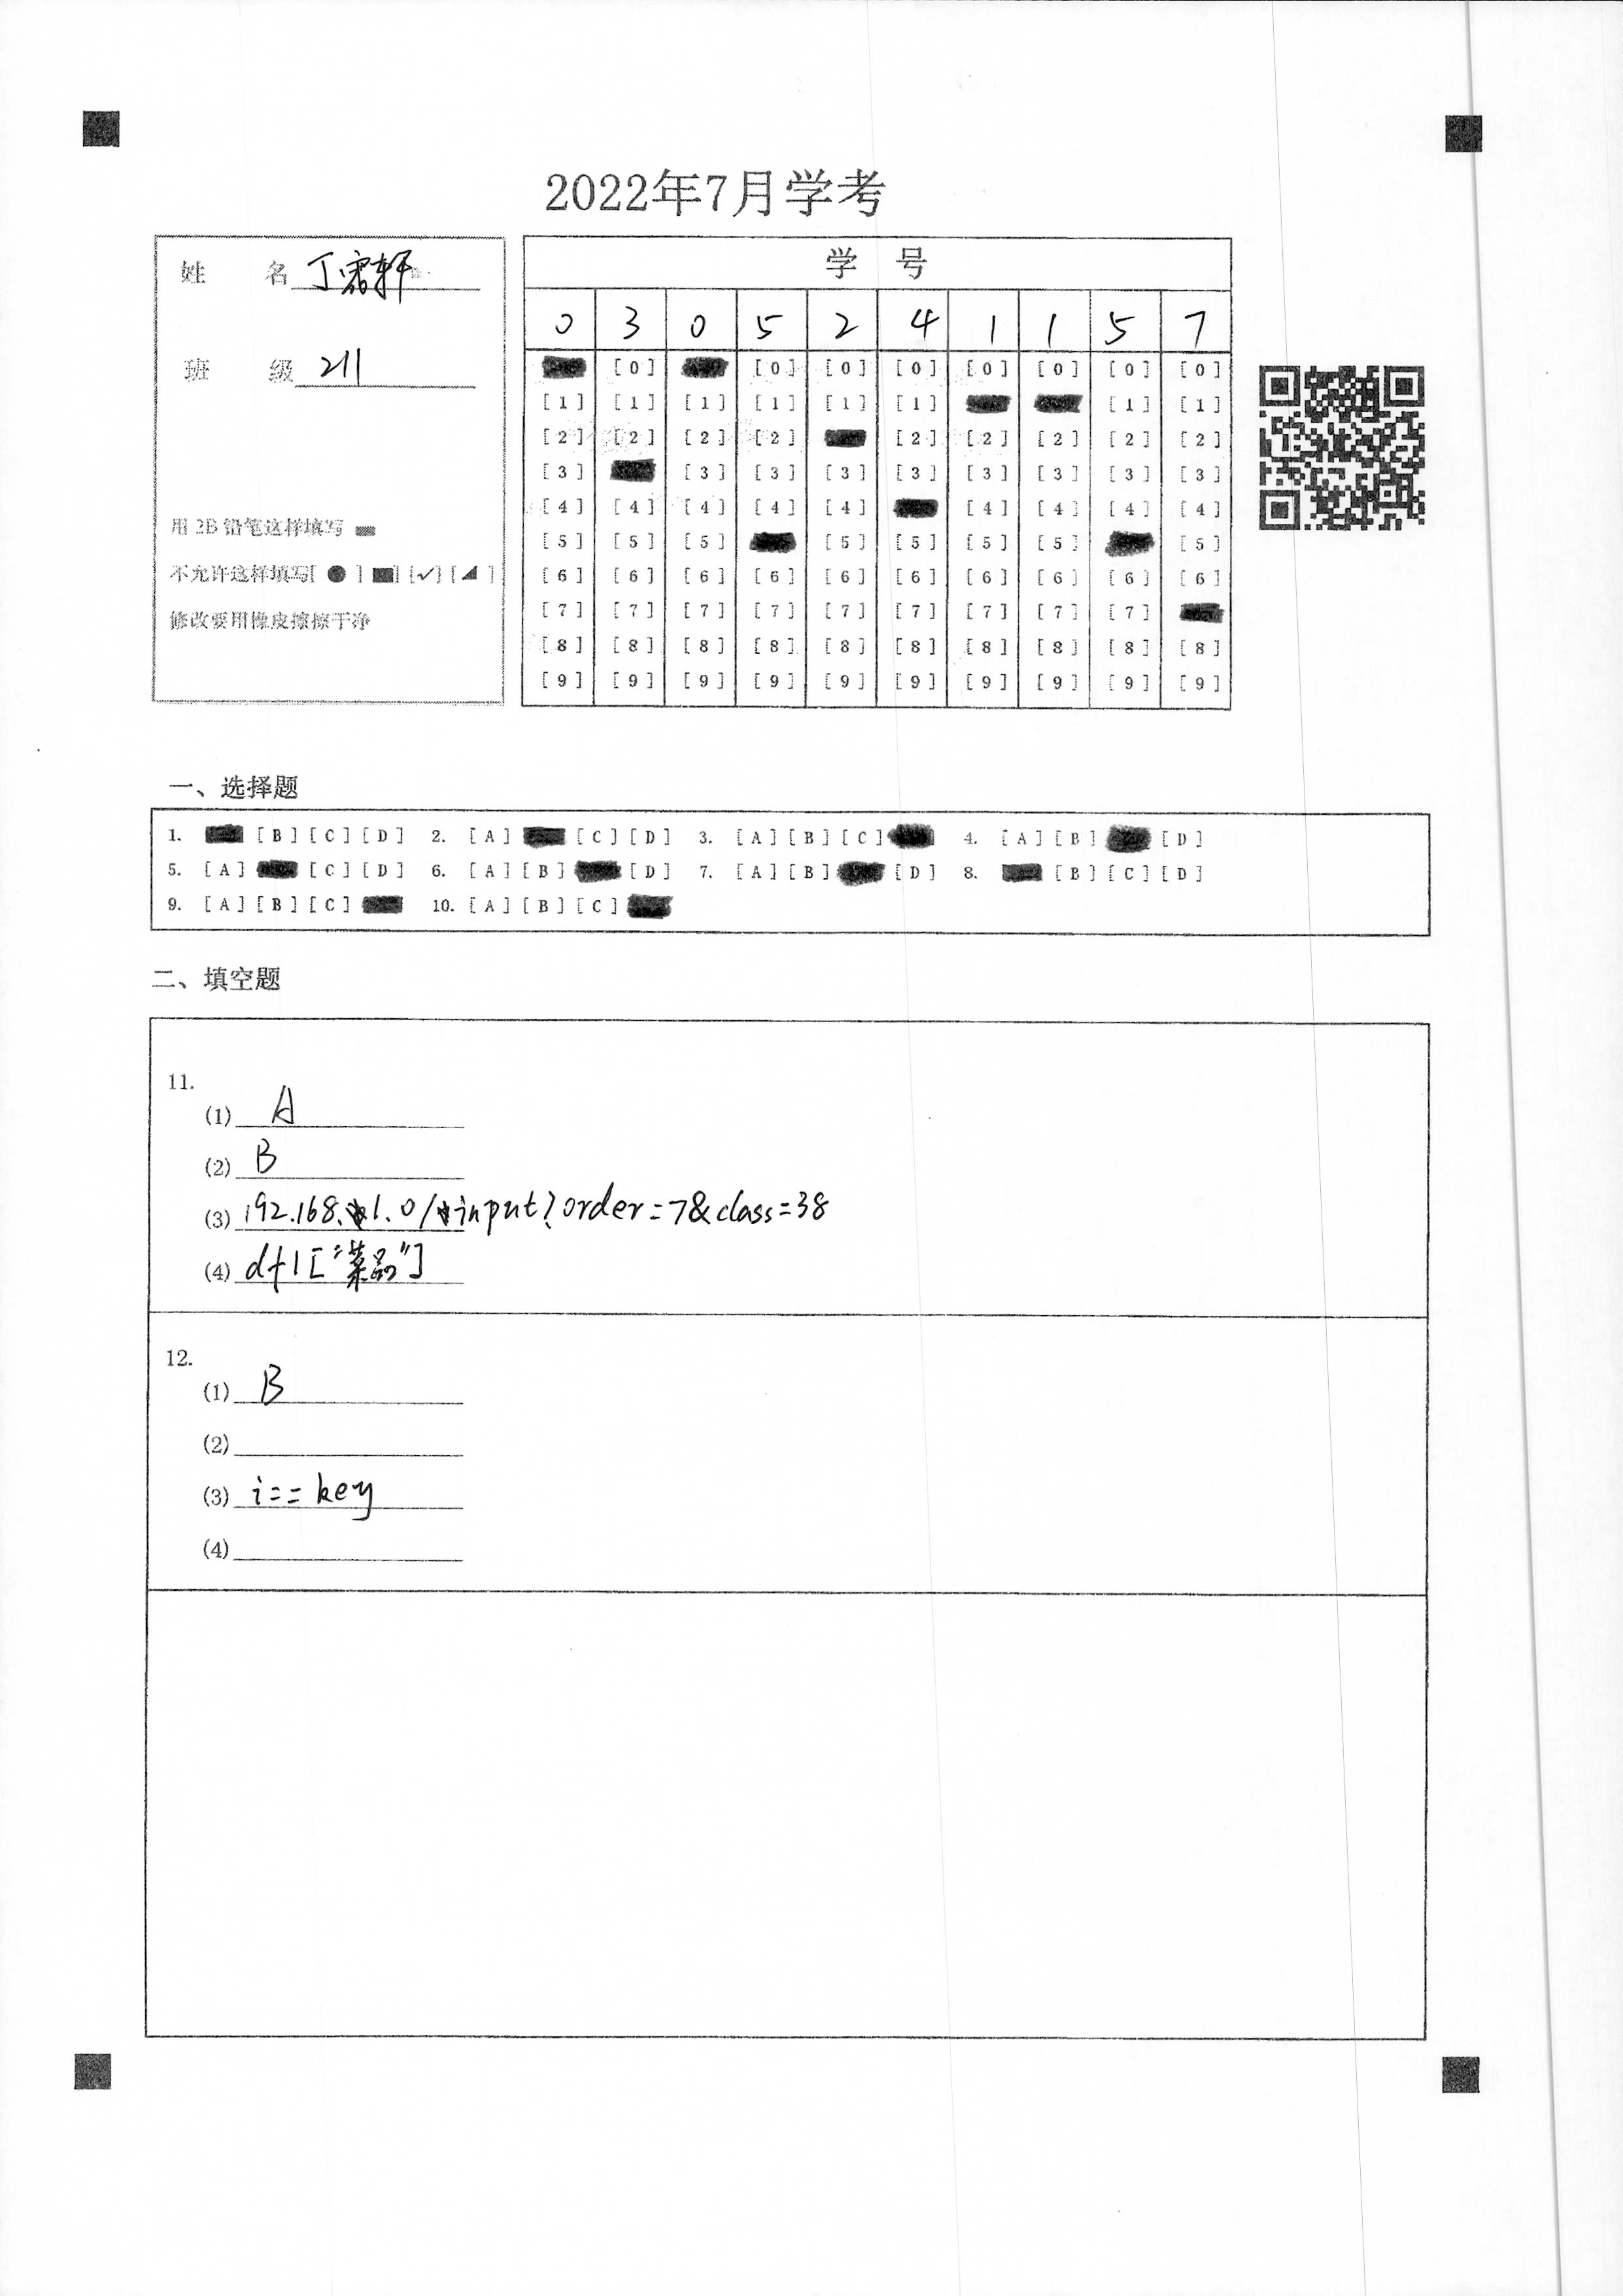 2022年7月学考
姓 名 丁 轩
班 级 211
用 2B 铅笔这样填写
不允许这样填写[ ● ] [■] [✓] [◢ ]
修改要用橡皮擦擦干净
学 号
0 3 0 5 2 4 1 1 5 7
[0] [0] [0] [0] [0] [0] [0] [0]
[1] [1] [1] [1] [1] [1] [1] [1]
[2] [2] [2] [2] [2] [2] [2] [2] [2]
[3] [3] [3] [3] [3] [3] [3] [3] [3]
[4] [4] [4] [4] [4] [4] [4] [4] [4]
[5] [5] [5] [5] [5] [5] [5] [5]
[6] [6] [6] [6] [6] [6] [6] [6] [6] [6]
[7] [7] [7] [7] [7] [7] [7] [7] [7]
[8] [8] [8] [8] [8] [8] [8] [8] [8] [8]
[9] [9] [9] [9] [9] [9] [9] [9] [9] [9]
一、选择题
1. [B] [C] [D] 2. [A] [C] [D] 3. [A] [B] [C] 4. [A] [B] [D]
5. [A] [C] [D] 6. [A] [B] [D] 7. [A] [B] [D] 8. [B] [C] [D]
9. [A] [B] [C] 10. [A] [B] [C]
二、填空题
11.
(1) A
(2) B
(3) 192.168.1.0/input?order=7&class=38
(4) df1["菜品"]
12.
(1) B
(2)
(3) i==key
(4)